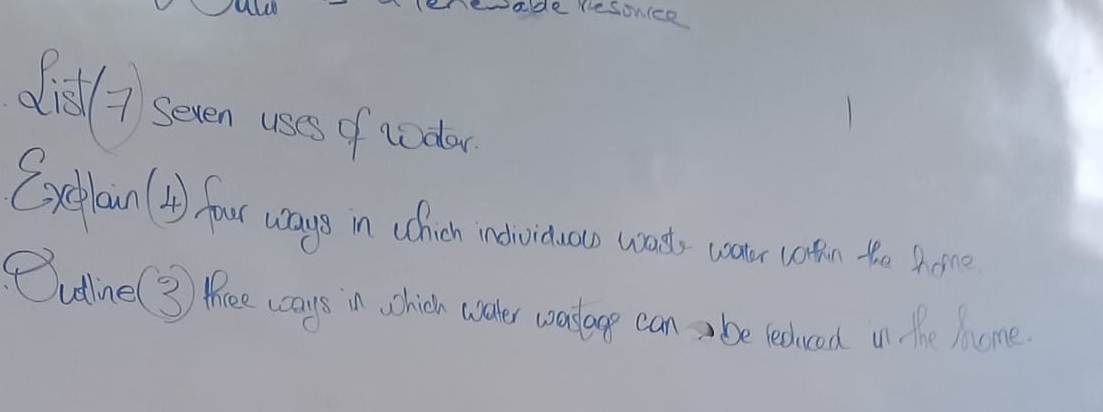 a renewable resource
List (7) seven uses of water.
Explain (4) four ways in which individuals waste water within the home.
Outline (3) three ways in which water wastage can be reduced in the home.